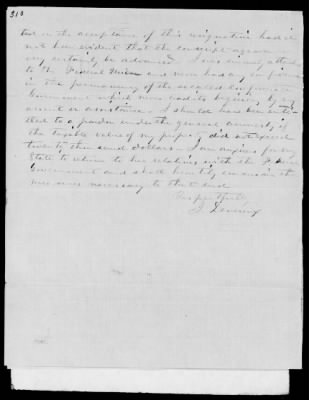 310
ted in the acceptance of this resignation had it
not been evident that the conscript age
would certainly be advanced. I was sincerely attached
to the Federal Union and never had any confidence
in the permanency of the so called Confederacy
have never aided or its beginning by any
act or assistance. I should have been entit-
led to a pardon under the general amnesty if
the taxable value of my property did not exceed
twenty thousand dollars. I am anxious for my
State to return to her relations with the Federal
Government and shall heartily in the
measures necessary to that end.
Respectfully
J.